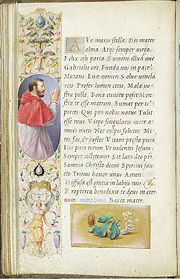 Ave maris stella, Dei mater
alma, Atq; semper virgo,
Felix cæli porta. Sumens illud aue
Gabrielis ore, Funda nos in pace,
Mutans Euæ nomen. Solue uincla
reis, Profer lumen cæcis, Mala no-
stra pelle, Bona cuncta posce. Mon-
stra te esse matrem, Sumat per te
preces Qui pro nobis natus Tulit
esse tuus. Virgo singularis inter o-
mnes mitis Nos culpis solutos Mi-
tes fac, & castos. Vitam præsta puram
Iter para tutum Vt uidentes Iesum
Semper collætemur. Sit laus deo pri,
Summo Christo decus Spiritui san-
cto Trinus honor unus. Amen.
Diffusa est gratia in labijs tuis
P
mum